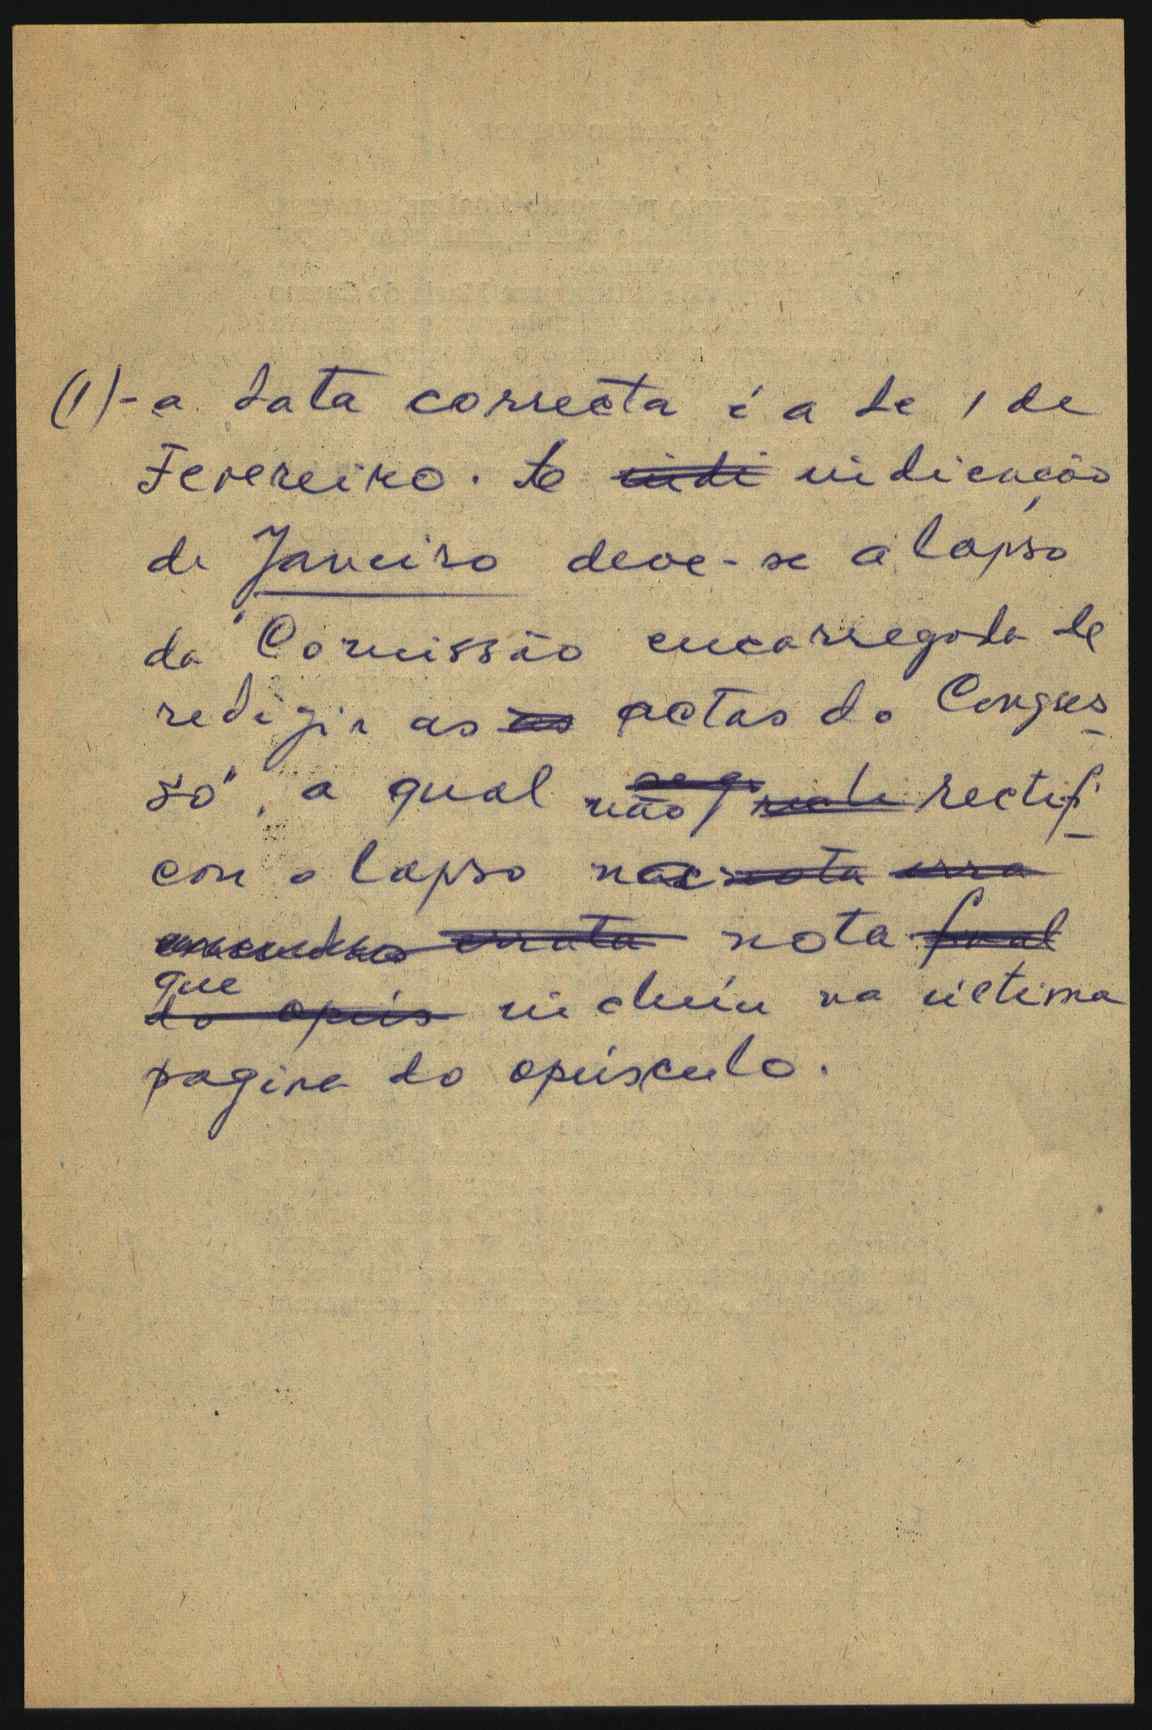 (1)- a data correcta é a de 1 de
Fevereiro. A indi indicação
de Janeiro deve-se a lapso
da "Comissão encarregada de
redigir as as actas do Congres
so", a qual não rectifi
cou o lapso na nota erra
errata nota final
que
do opús incluiu na última
página do opúsculo.